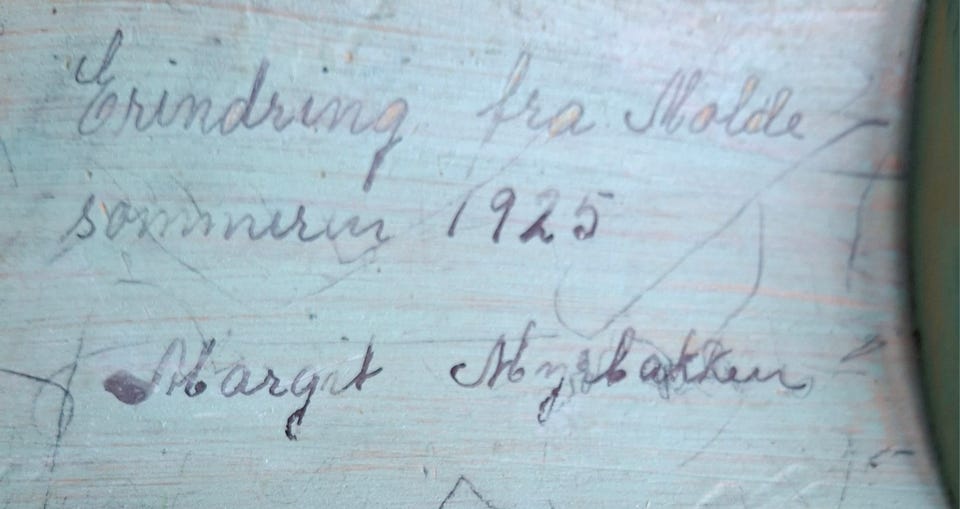 Erindring fra Molde
sommeren 1925
Margit Myrbakken